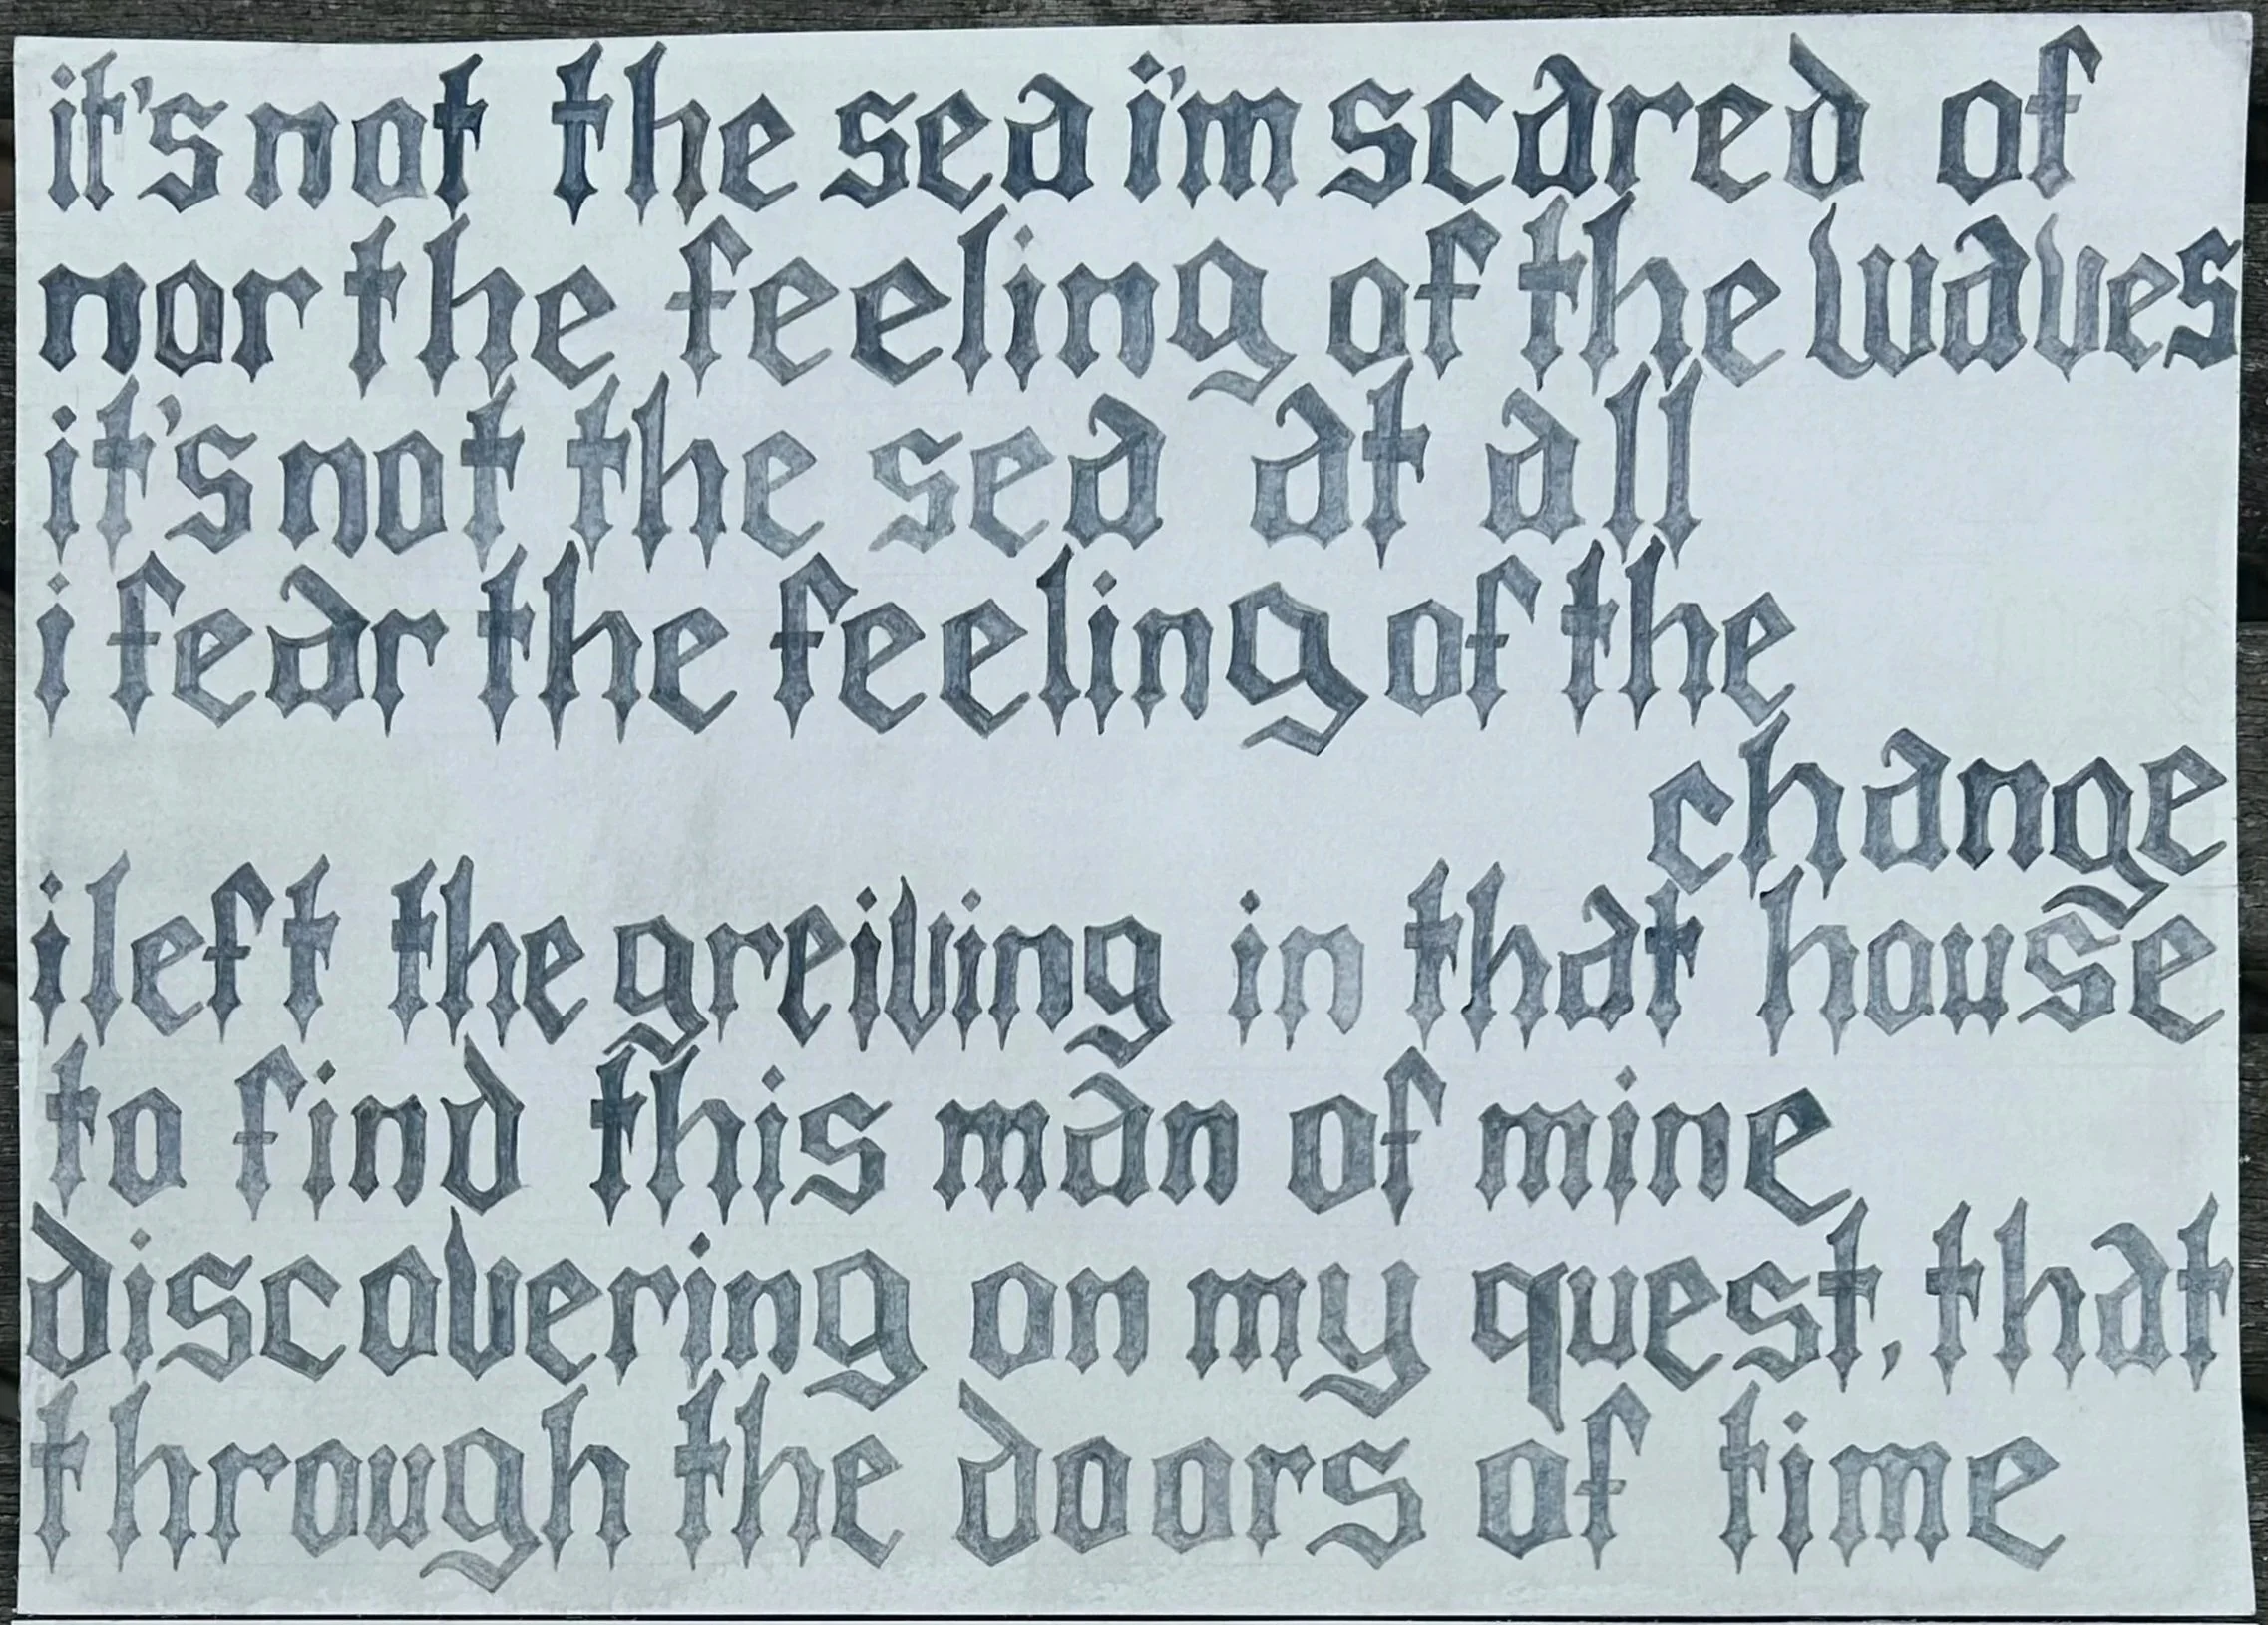 it's not the sea i'm scared of
nor the feeling of the waves
it's not the sea at all
i fear the feeling of the
change
i left the greiving in that house
to find this man of mine
discovering on my quest, that
through the doors of time